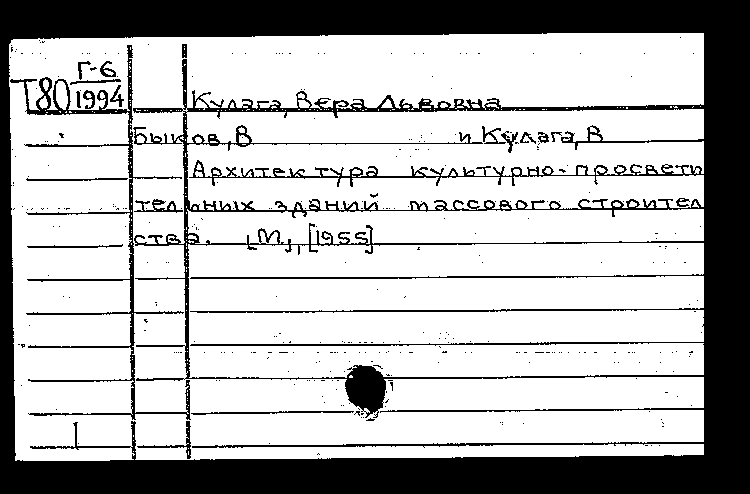 Г-6
Т80 1994
Кулага, Вера Львовна
Быков, В и Кулага, В
Архитектура культурно-просвети
тельных зданий массового строител
ства. [М], [1955]